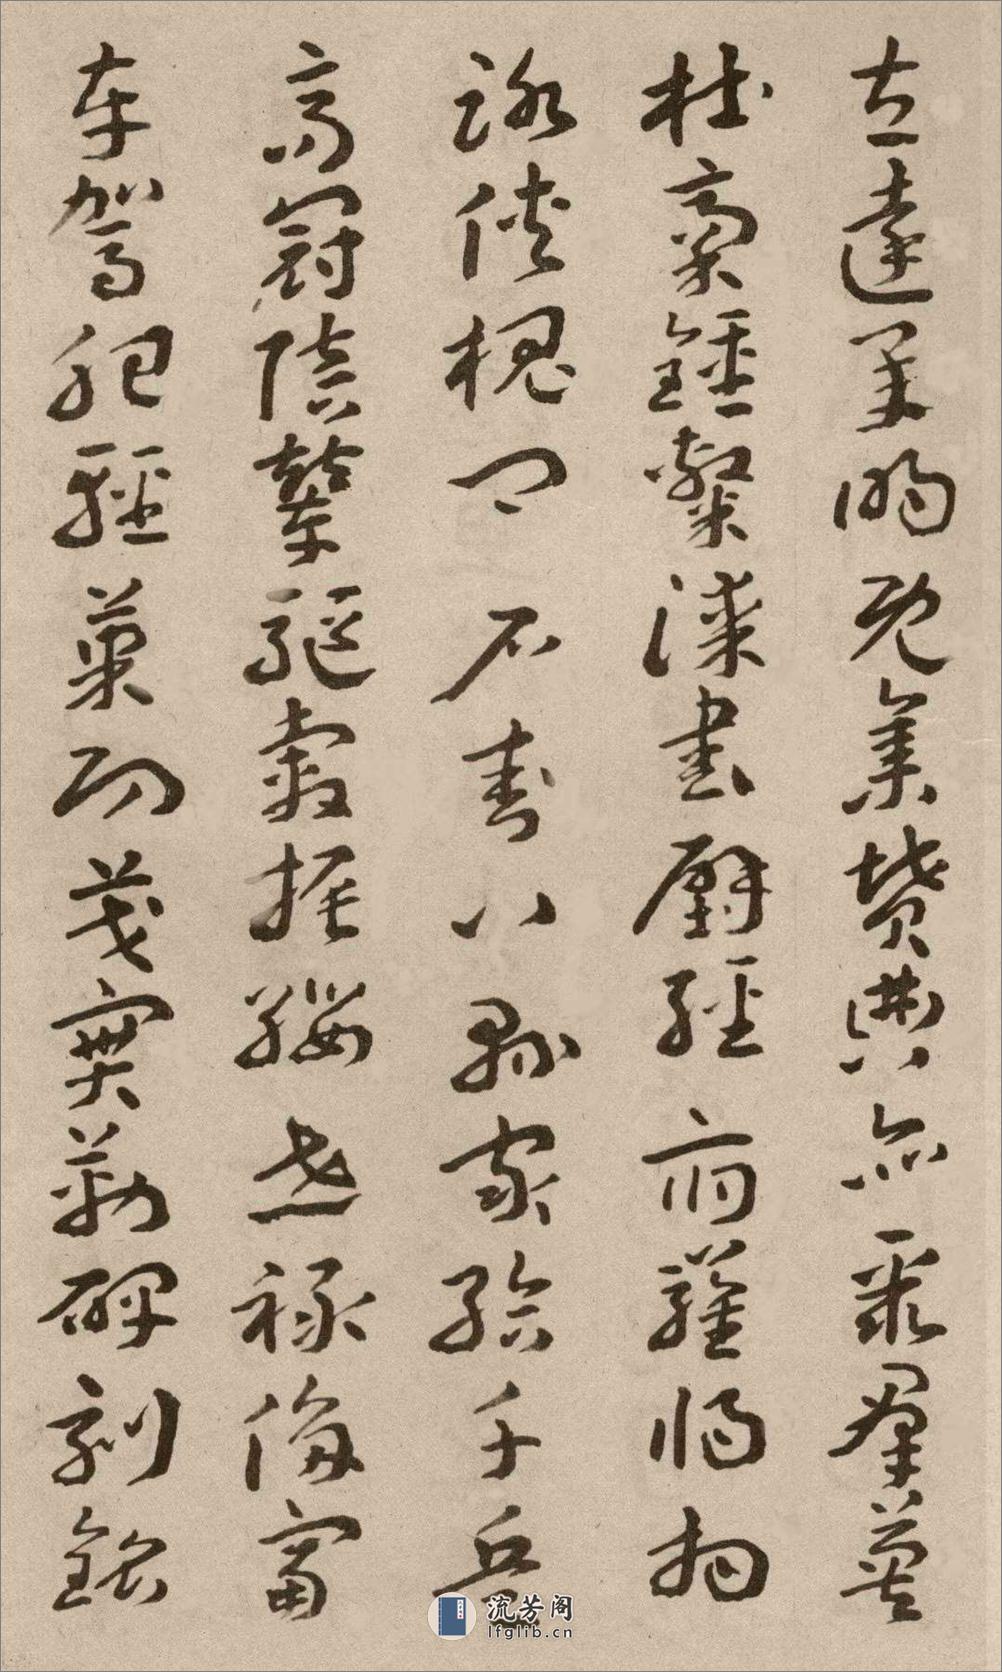 左達承明既集墳典亦聚羣英
杜稾鍾隸漆書壁經府羅將相
路俠槐卿戶封八縣家給千兵
高冠陪輦驅轂振纓世祿侈富
車駕肥輕策功茂實勒碑刻銘
流芳阁
lfglib.cn